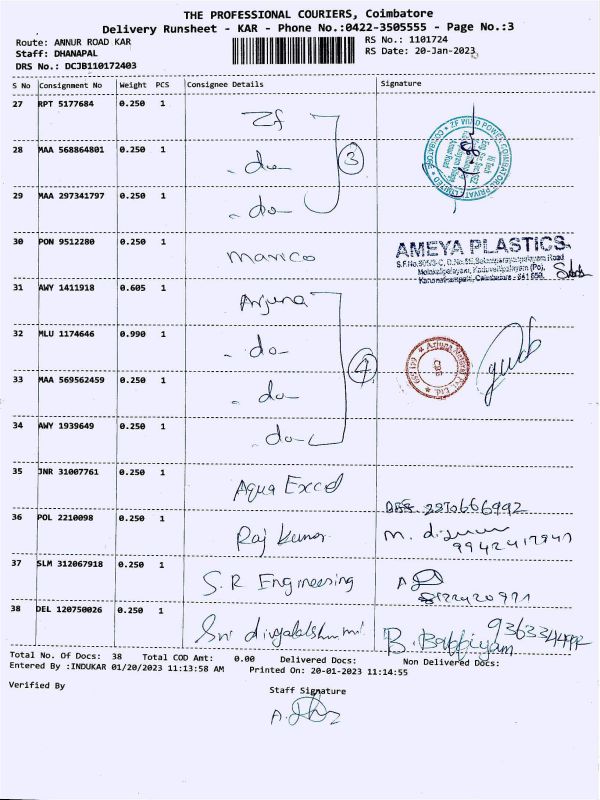 THE PROFESSIONAL COURIERS, Coimbatore
Delivery Runsheet - KAR - Phone No.:0422-3505555 - Page No.:3
Route: ANNUR ROAD KAR
RS No.: 1101724
Staff: DHANAPAL
RS Date: 20-Jan-2023
DRS No.: DCJB110172403
S No Consignment No Weight PCS Consignee Details Signature
27 RPT 5177684 0.250 1 Zf
28 MAA 568864801 0.250 1 - do - 3
29 MAA 297341797 0.250 1 - do -
30 PON 9512280 0.250 1 Marico AMEYA PLASTICS
31 AWY 1411918 0.605 1 Arjuna
32 MLU 1174646 0.990 1 - do - 4
33 MAA 569562459 0.250 1 - do -
34 AWY 1939649 0.250 1 - do -
35 JNR 31007761 0.250 1 Aqua Excel
36 POL 2210098 0.250 1 Raj Kumar
37 SLM 312067918 0.250 1 S.R Engineering
38 DEL 120750026 0.250 1 Sri
Total No. Of Docs: 38 Total COD Amt: 0.00 Delivered Docs: Non Delivered Docs:
Entered By :INDUKAR 01/20/2023 11:13:58 AM Printed On: 20-01-2023 11:14:55
Verified By
Staff Signature